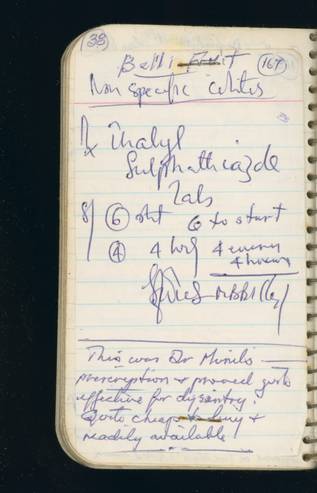 (33)
Belli (167)
Non specific colitis
Rx Thalyl
Sulphathiazole
Tabs
S/ (6) stat 6 to start
(4) 4 hrly 4 every
4 hours
This was Dr
prescription & proved quite
effective for dysentry.
Quite cheap to buy &
readily available